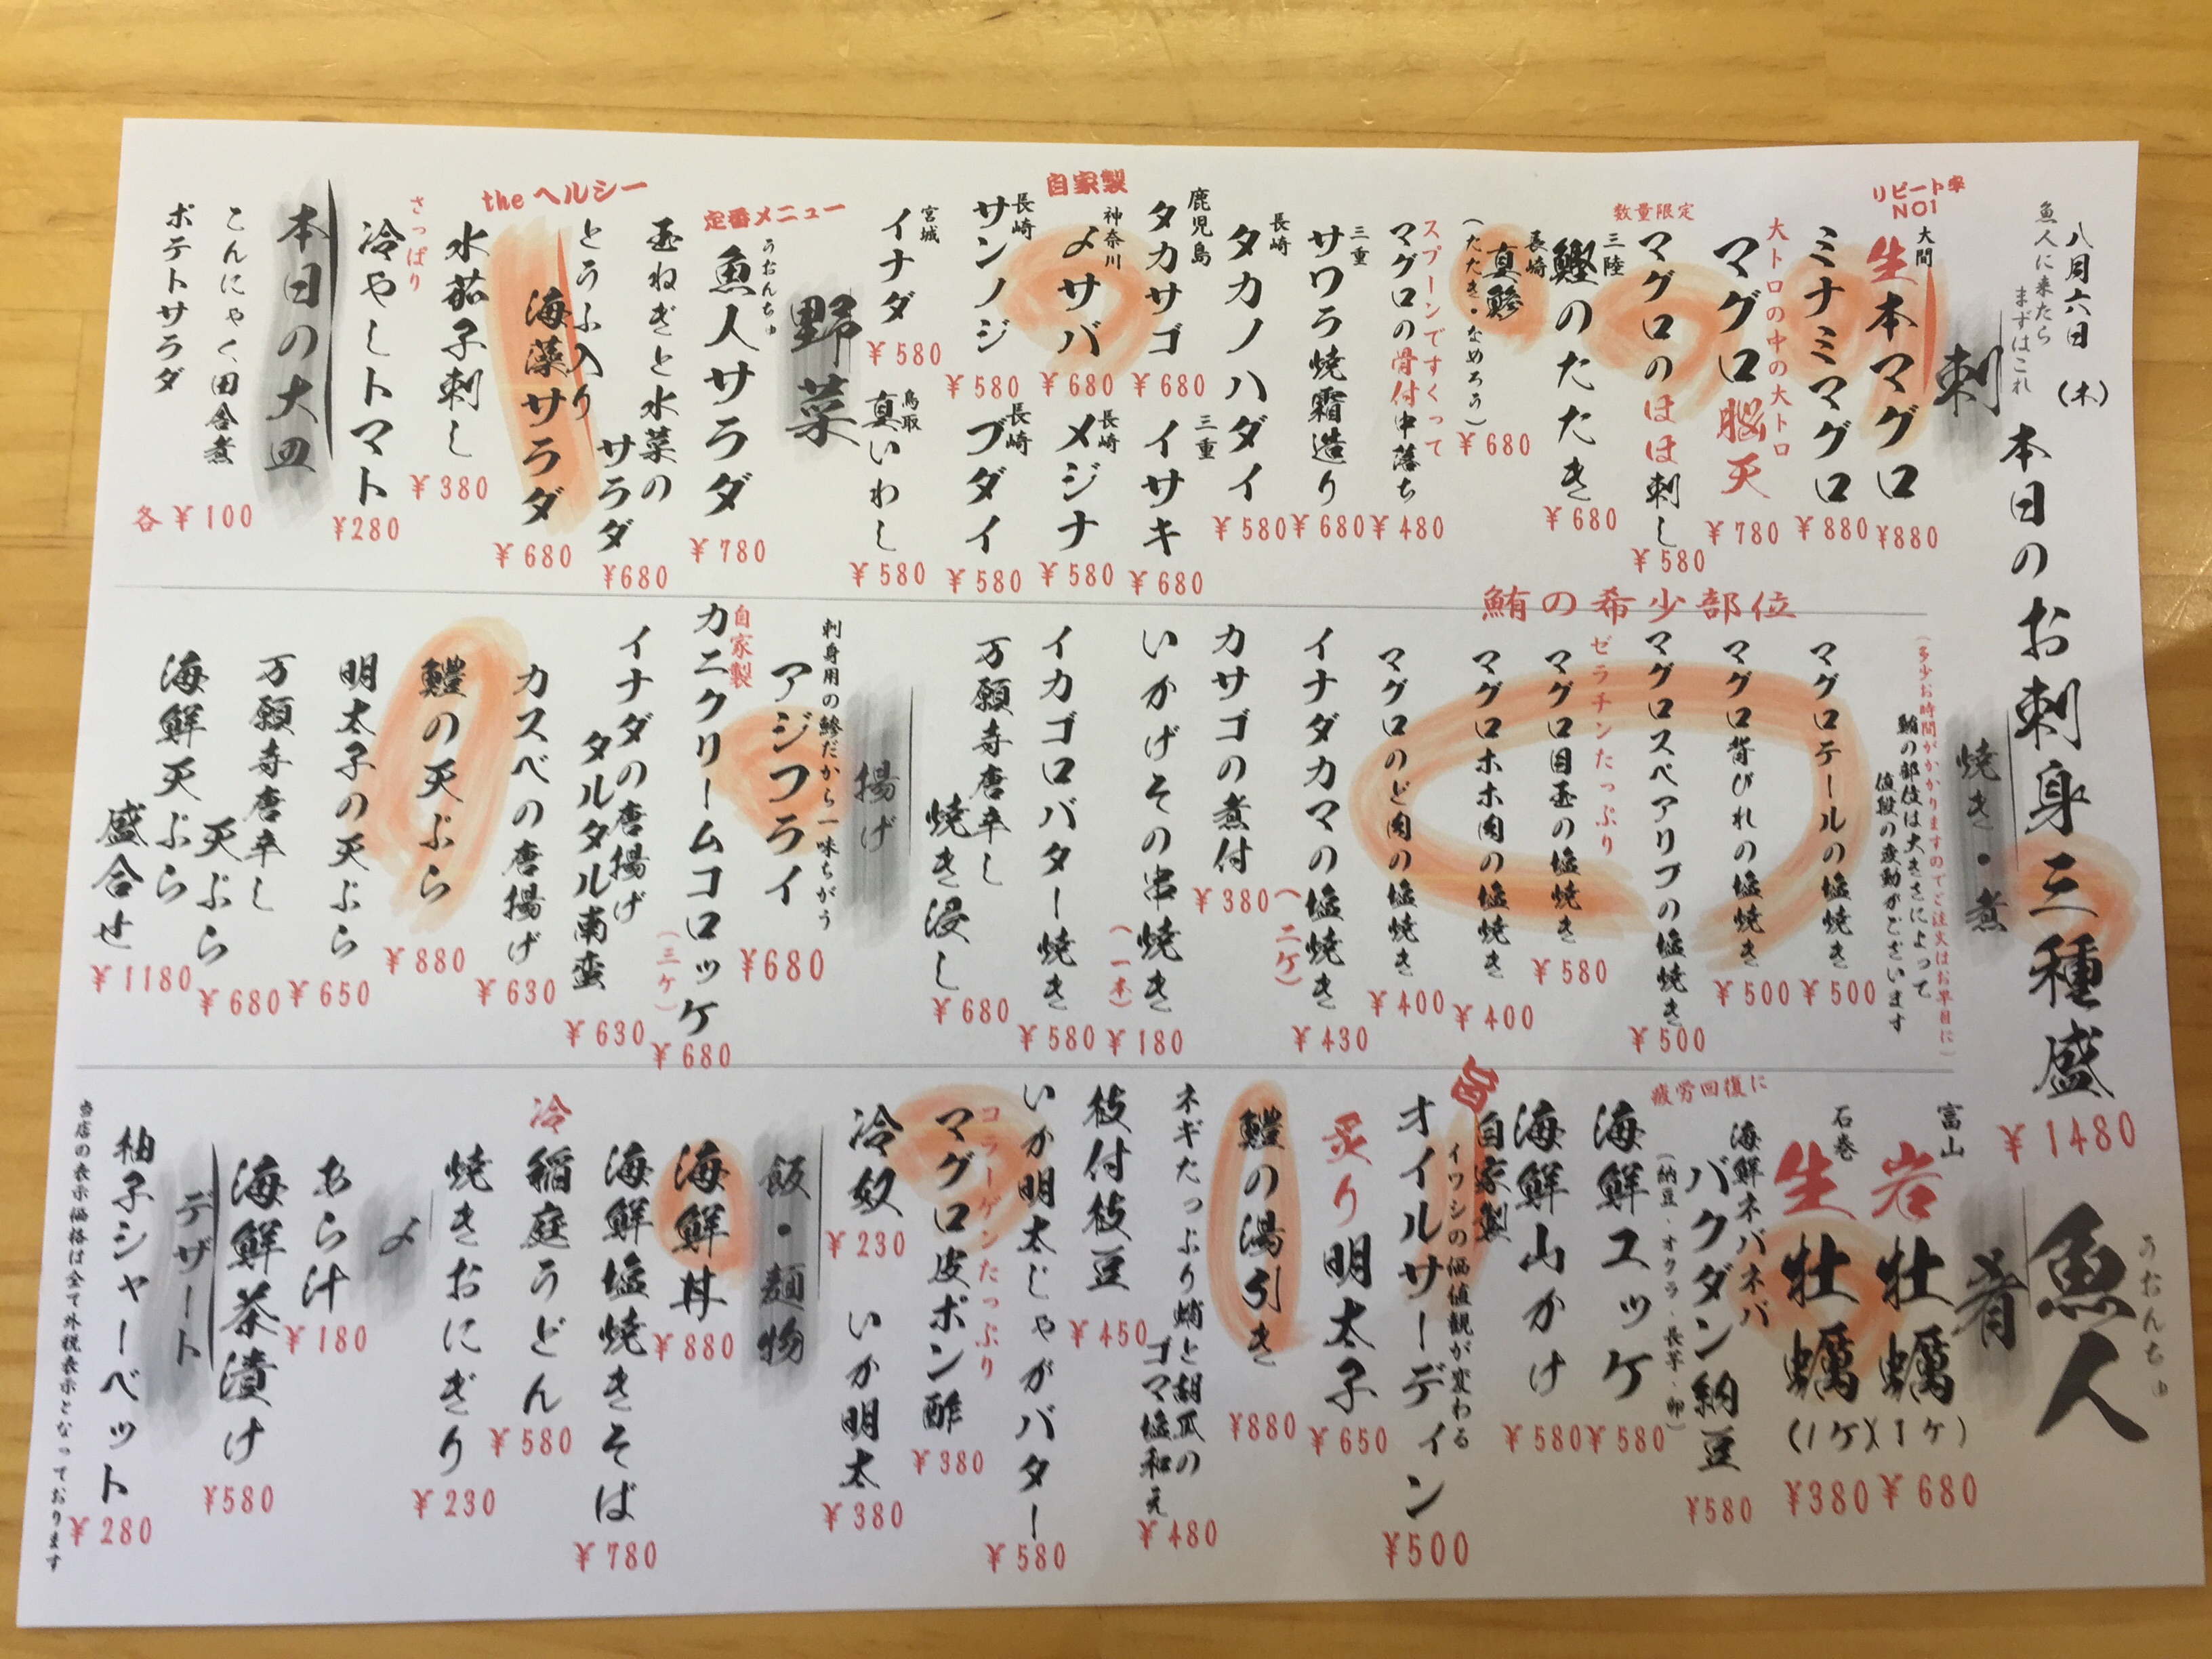 八月六日(木)
魚人に来たら
まずはこれ
本日のお刺身三種盛
¥1480
うおんちゅ
魚人
刺
リピート率
NO1
大間
生本マグロ
¥880
ミナミマグロ
¥880
大トロの中の大トロ
マグロ脳天
¥780
数量限定
マグロのほほ刺し
¥580
三陸
鰹のたたき
¥680
長崎
真鯵
(たたき・なめろう)
¥680
スプーンですくって
マグロの骨付中落ち
¥480
三重
サワラ焼霜造り
¥680
長崎
タカノハダイ
¥580
鹿児島
タカサゴ
¥680
三重
イサキ
¥680
自家製
神奈川
〆サバ
¥680
長崎
メジナ
¥580
長崎
サンノジ
¥580
長崎
ブダイ
¥580
宮城
イナダ
¥580
鳥取
真いわし
¥580
野菜
定番メニュー
うおんちゅ
魚人サラダ
¥780
玉ねぎと水菜の
サラダ
¥680
theヘルシー
とうふ入り
海藻サラダ
¥680
水茄子刺し
¥380
さっぱり
冷やしトマト
¥280
本日の大皿
こんにゃく田舎煮
ポテトサラダ
各¥100
焼き・煮
(多少お時間がかかりますのでご注文はお早目に)
鮪の部位は大きさによって
値段の変動がございます
鮪の希少部位
マグロテールの塩焼き
¥500
マグロ背びれの塩焼き
¥500
マグロスペアリブの塩焼き
¥500
ゼラチンたっぷり
マグロ目玉の塩焼き
¥580
マグロホホ肉の塩焼き
¥400
マグロのど肉の塩焼き
¥400
イナダカマの塩焼き
(二ケ)
¥430
カサゴの煮付
¥380
いかげその串焼き
(一本)
¥180
イカゴロバター焼き
¥580
万願寺唐辛し
焼き浸し
¥680
揚げ
刺身用の鯵だから一味ちがう
アジフライ
¥680
自家製
カニクリームコロッケ
(三ケ)
¥680
イナダの唐揚げ
タルタル南蛮
¥630
カスベの唐揚げ
¥630
鱧の天ぷら
¥880
明太子の天ぷら
¥650
万願寺唐辛し
天ぷら
¥680
海鮮天ぷら
盛合せ
¥1180
肴
富山
岩牡蠣
(1ケ)
¥680
石巻
生牡蠣
(1ケ)
¥380
疲労回復に
海鮮ネバネバ
バクダン納豆
(納豆・オクラ・長芋・卵)
¥580
海鮮ユッケ
¥580
海鮮山かけ
¥580
旨
自家製
イワシの価値観が変わる
オイルサーディン
¥500
炙り明太子
¥650
鱧の湯引き
¥880
ネギたっぷり蛸と胡瓜の
ゴマ塩和え
¥480
枝付枝豆
¥450
いか明太じゃがバター
¥580
コラーゲンたっぷり
マグロ皮ポン酢
¥380
冷奴
¥230
いか明太
¥380
飯・麺物
海鮮丼
¥880
海鮮塩焼きそば
¥780
冷
稲庭うどん
¥580
焼きおにぎり
¥230
〆
あら汁
¥180
海鮮茶漬け
¥580
デザート
柚子シャーベット
¥280
当店の表示価格は全て外税表示となっております